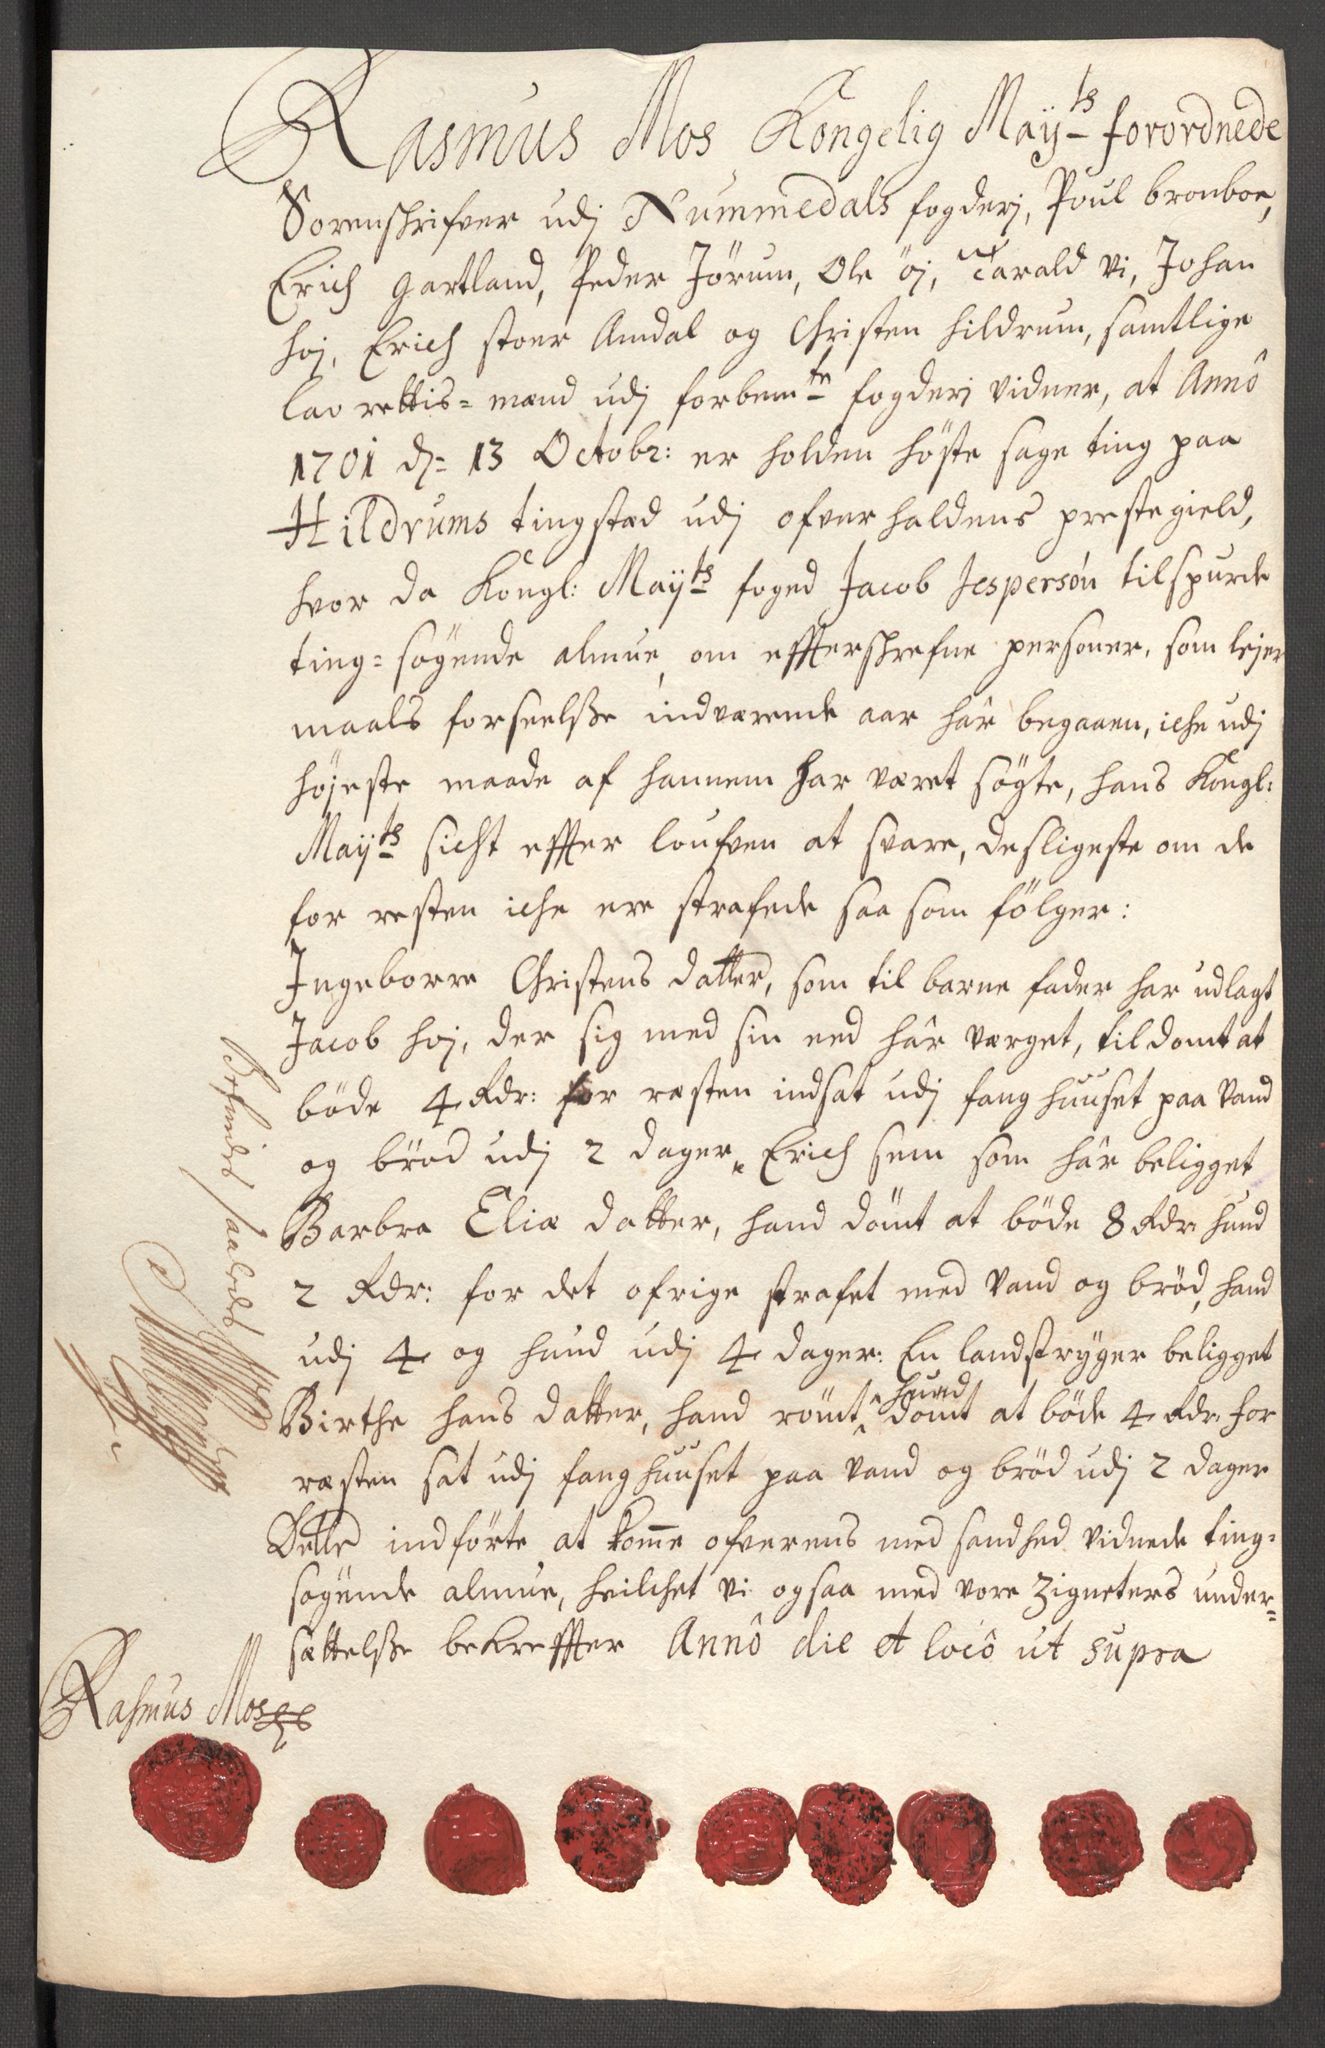 Rasmus Mos Kongelig Maÿts forordnede
Sorenschrifver udj Nummedals fogderj, Poul bronboe,
Erich Gartland, Peder Jörum, Ole öj, Tarald Vi, Johan
hoj, Erich stoer Amdal og Christen hildrum, samtlige
lau rettis=mænd udj forbemte fogderj vidner, at Annô
1701 d= 13 Octobr: er holden höste sage ting paa
Hildrums tingstæd udj ofverhaldens prestegield,
hvor da Kongl: Maÿts foged Jacob Jespersøn tilspurde
ting=søgende almue, om effterschrefne personer, som lejer
maals forseelsße indværende aar hâr begaaen, iche udj
højeste maade af hannem har været søgte, hans Kongl:
Maÿts sicht effter loufven at svare, desligeste om de
for resten iche ere strafede saa som følger:
Ingeborre Christens datter, som til barne fader har udlagt
Jacob hoj, der sig med sin eed hâr værget, tildømt at
bøde 4 Rdr: for resten indsat udj fang huuset paa vand
og brød udj 2 dager. Erich sem som hâr beligget
Barbra Eliæ datter, hand dömt at böde 8 Rdr: hund
2 Rdr: for det ofrige strafet med vand og bröd, hand
udj 4 og hund udj 4 dager: En landstryger beligget
Birthe hans datter, hand römt, hund dömt at böde 4 Rdr: for
resten sat udj fang huuset paa vand og bröd udj 2 dager
Dette indförte at komme ofverens med sandhed vidnede ting=
søgende almue, hvilchet vi ogsaa med vore Zigneters under=
sættelsße bekreffter Annô die et locô ut supra
Rasmus Mos
Befindes saaledes